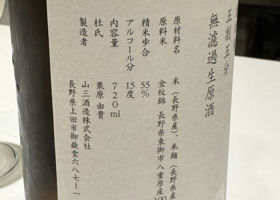 五割五分
無濾過生原酒
原材料名　米（長野県産）、米麹（長野県産
原料米　金紋錦　長野県東御市八重原産100
精米歩合　55％
アルコール分　15度
内容量　720ml
杜氏　栗原由貴
製造者　山三酒造株式会社
長野県上田市御嶽堂六八七－一